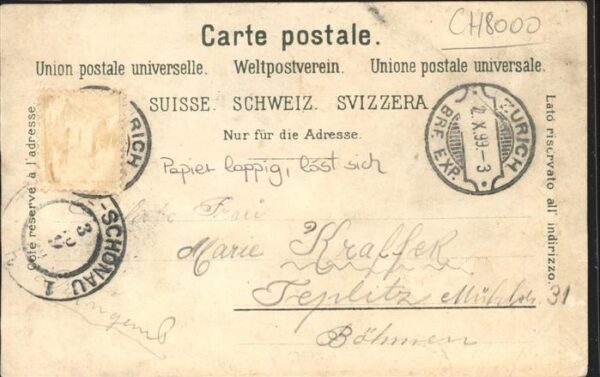 CH8000
Carte postale.
Union postale universelle. Weltpostverein. Unione postale universale.
SUISSE. SCHWEIZ. SVIZZERA.
Nur für die Adresse.
Côté réservé à l'adresse.
Lato riservato all' indirizzo.
ZÜRICH
2.X.99.-3
BRF. EXP.
RICH
Papier lappig, löst sich
-SCHÖNAU 1
Frau
Marie
Teplitz 31
Böhmen